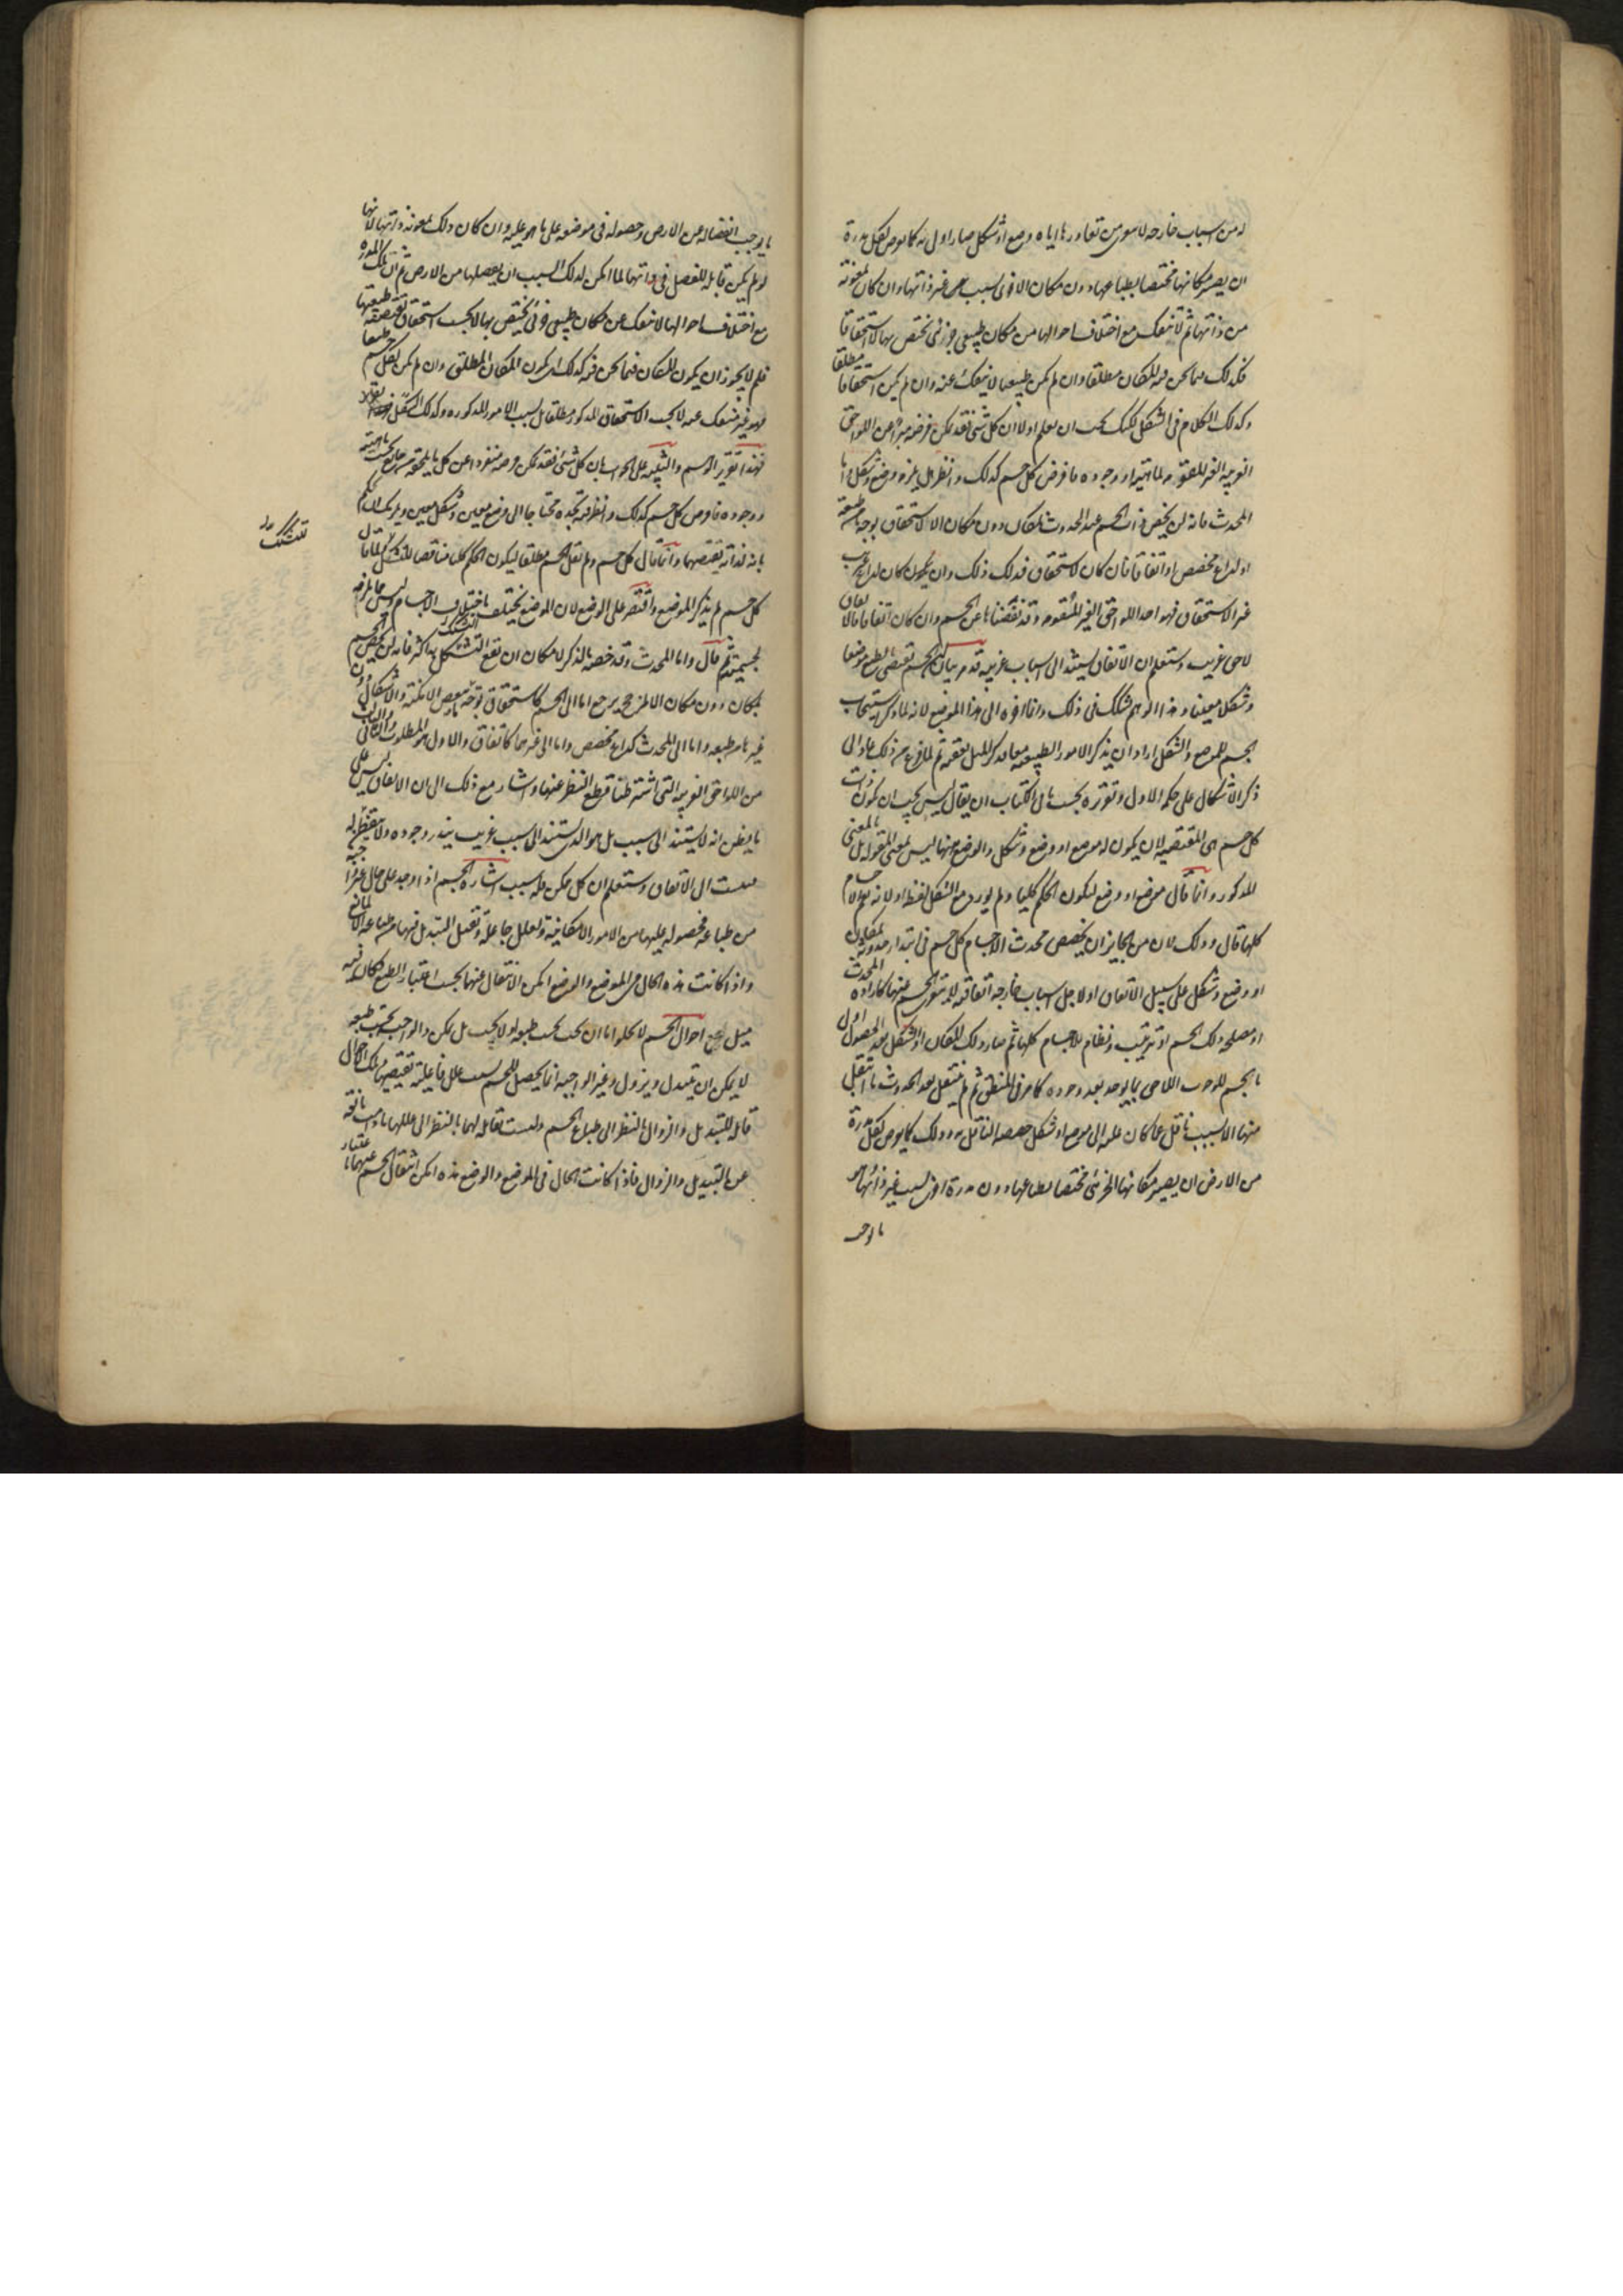 ان يصير مكانها مختصا بطباعها دون مكان الاخرى لسبب غير ذاتها وان كان بمعونة
من ذاتها ثم لا تنفك مع اختلاف احوالها من مكان طبيعى جزئى يختص بها لا استحقاقا
مطلقا
فكذلك فيما نحن فيه المكان مطلقا وان لم يكن طبيعيا لا ينفك عنه وان لم يكن استحقاقا
وكذلك الكلام فى الشكل لكنك يجب ان تعلم اولا ان كل شئ فقد يمكن فرضه مبرأ عن اللواحق
الغريبة الغير المقومة لماهيته او وجوده فافرض كل جسم كذلك وانظر هل يلزمه وضع وشكل اما
المحدث فانه لن يخص ذات الجسم عند الحدوث بمكان دون مكان الا لاستحقاق بوجه ما طبيعته
او لداع مخصص او اتفاقا فان كان لاستحقاق فذلك ذلك وان كان لداع غريب
غير الاستحقاق فهو احد اللواحق الغير المقومة وقد نفضناها عن الجسم وان كان اتفاقا فالاتفاق
لاحق غريب وستعلم ان الاتفاق يستند الى اسباب غريبة قد مر بيان ان الجسم يقتضى بالطبع موضعا
وشكلا معينا وهذا الوهم شكك فى ذلك وانما اخره الى هذا الموضع لانه لما ذكر استيجاب
الجسم للموضع والشكل اراد ان يذكر الامور الطبيعية معا فذكر الميل بعقبه ثم لما فرغ من ذلك عاد الى
ذكر الاشكال على حكمه الاول وتقريره بحسب ما فى الكتاب ان يقال ليس يجب ان يكون ذات
كل جسم هى المقتضية لان يكون له موضع او وضع وشكل والوضع ههنا ليس بمعنى المقولة بل بالمعنى
المذكور وانما قال موضع او وضع ليكون الحكم كليا ولم يورد مع الشكل لفظة او لانه يعم الاجسام
كلها قال وذلك لان من الجايز ان يخصص محدث الاجسام كل جسم فى ابتداء حدوثه بمكان
او وضع وشكل على سبيل الاتفاق او لاجل اسباب خارجة اتفاقية لا يتعرى الجسم عنها كارادة المحدث
او مصلحة لذلك الجسم او ترتيب ونظام للاجسام كلها ثم صار ذلك المكان او الشكل بعد الحصول اولى
بالجسم للوجوب اللاحق بما يوجد بعد وجوده كما مر فى المنطق ثم لم ينتقل بعد الحدوث ما انتقل
منها الا بسبب ناقل عما كان عليه الى موضع او شكل خصصه الناقل به وذلك كما يعرض لكل مدرة
من الارض ان يصير مكانها الجزئى مختصا بطباعها دون مدرة اخرى لسبب غير ذاتها هو
ما يوجب
ما يوجب انفصاله عن الارض وحصوله فى موضعه على ما هو عليه وان كان ذلك بمعونة ذاتها لانها
لو لم يكن قابلة للفصل فى ذاتها لما امكن لذلك السبب ان يفصلها من الارض ثم ان تلك المدرة
مع اختلاف احوالها لا تنفك عن مكان طبيعى جزئى يختص بها لا بحسب استحقاق تقتضيه طبيعتها
فلم لا يجوز ان يكون للمكان فيما نحن فيه كذلك اى يكون المكان المطلق وان لم يكن لكل جسم طبيعيا
فهو غير منفك عنه لا بحسب الاستحقاق المذكور مطلقا بل بسبب الامور المذكورة وكذلك الشكل
فهذا تقرير الوهم والتنبيه على الجواب بان كل شئ فقد يمكن فرضه منفردا عن كل ما يلحقه من خارج بحسب ماهيته
ووجوده فافرض كل جسم كذلك وانظر فيه تجده محتاجا الى وضع معين وشكل معين
بانه لذاته يقتضيهما وانما قال كل جسم ولم يقل الجسم مطلقا ليكون الحكم كليا مناقضا للتشكيك
كل جسم لم يذكر الموضع واقتصر على الوضع لان الموضع يختلف باختلاف الاجسام وليس مما يلزمه
لجسميته ثم قال واما المحدث وقد خصه بالذكر لامكان ان يقع التشكك به اكثر فانه لن يخص الجسم
بمكان دون مكان الا لمرجح يرجع اما الى الجسم كاستحقاق بوجه ما لبعض الامكنة والاشكال دون
غيره ما بطبعه واما الى المحدث كداع مخصص واما الى غيرهما كاتفاق والاول هو المطلوب والثانى والثالث
من اللواحق الغريبة التى اشترطنا قطع النظر عنها واشار مع ذلك الى ان الاتفاق ليس على
ما يظن انه لا يستند الى سبب بل هو الذى يستند الى سبب غريب يندر وجوده ولا يتفطن له
فينسب الى الاتفاق وستعلم ان كل ممكن فله سبب اشارة الجسم اذا وجد على حال غير واجبة
من طباعه فحصوله عليها من الامور الامكانية ولعلل جاعلة وتقبل التبديل فيها من طباعه الا لمانع
واذا كانت هذه الحال من الموضع والوضع امكن الانتقال عنها بحسب اعتبار الطبع فكان فيه
ميل جميع احوال الجسم لا يخلو اما ان يجب بحسب طبعه او لا يجب بل يمكن والواجب بحسب طبعه
لا يمكن ان يتبدل ويزول وغير الواجبة انما يحصل للجسم بسبب علل فاعلية تقتضيها تلك الاحوال
قابلة للتبديل والزوال بالنظر الى طباع الجسم وليست بقابلة لهما بالنظر الى عللها ما دامت مانعة
عن التبديل والزوال فاذا كانت الحال فى الموضع والوضع هذه امكن انتقال الجسم عنهما باعتبار
للتشكك